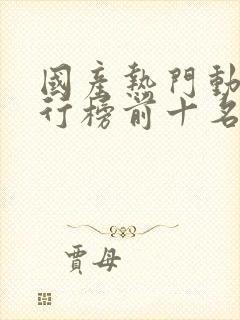 國產熱門動
行榜前十名
賈母